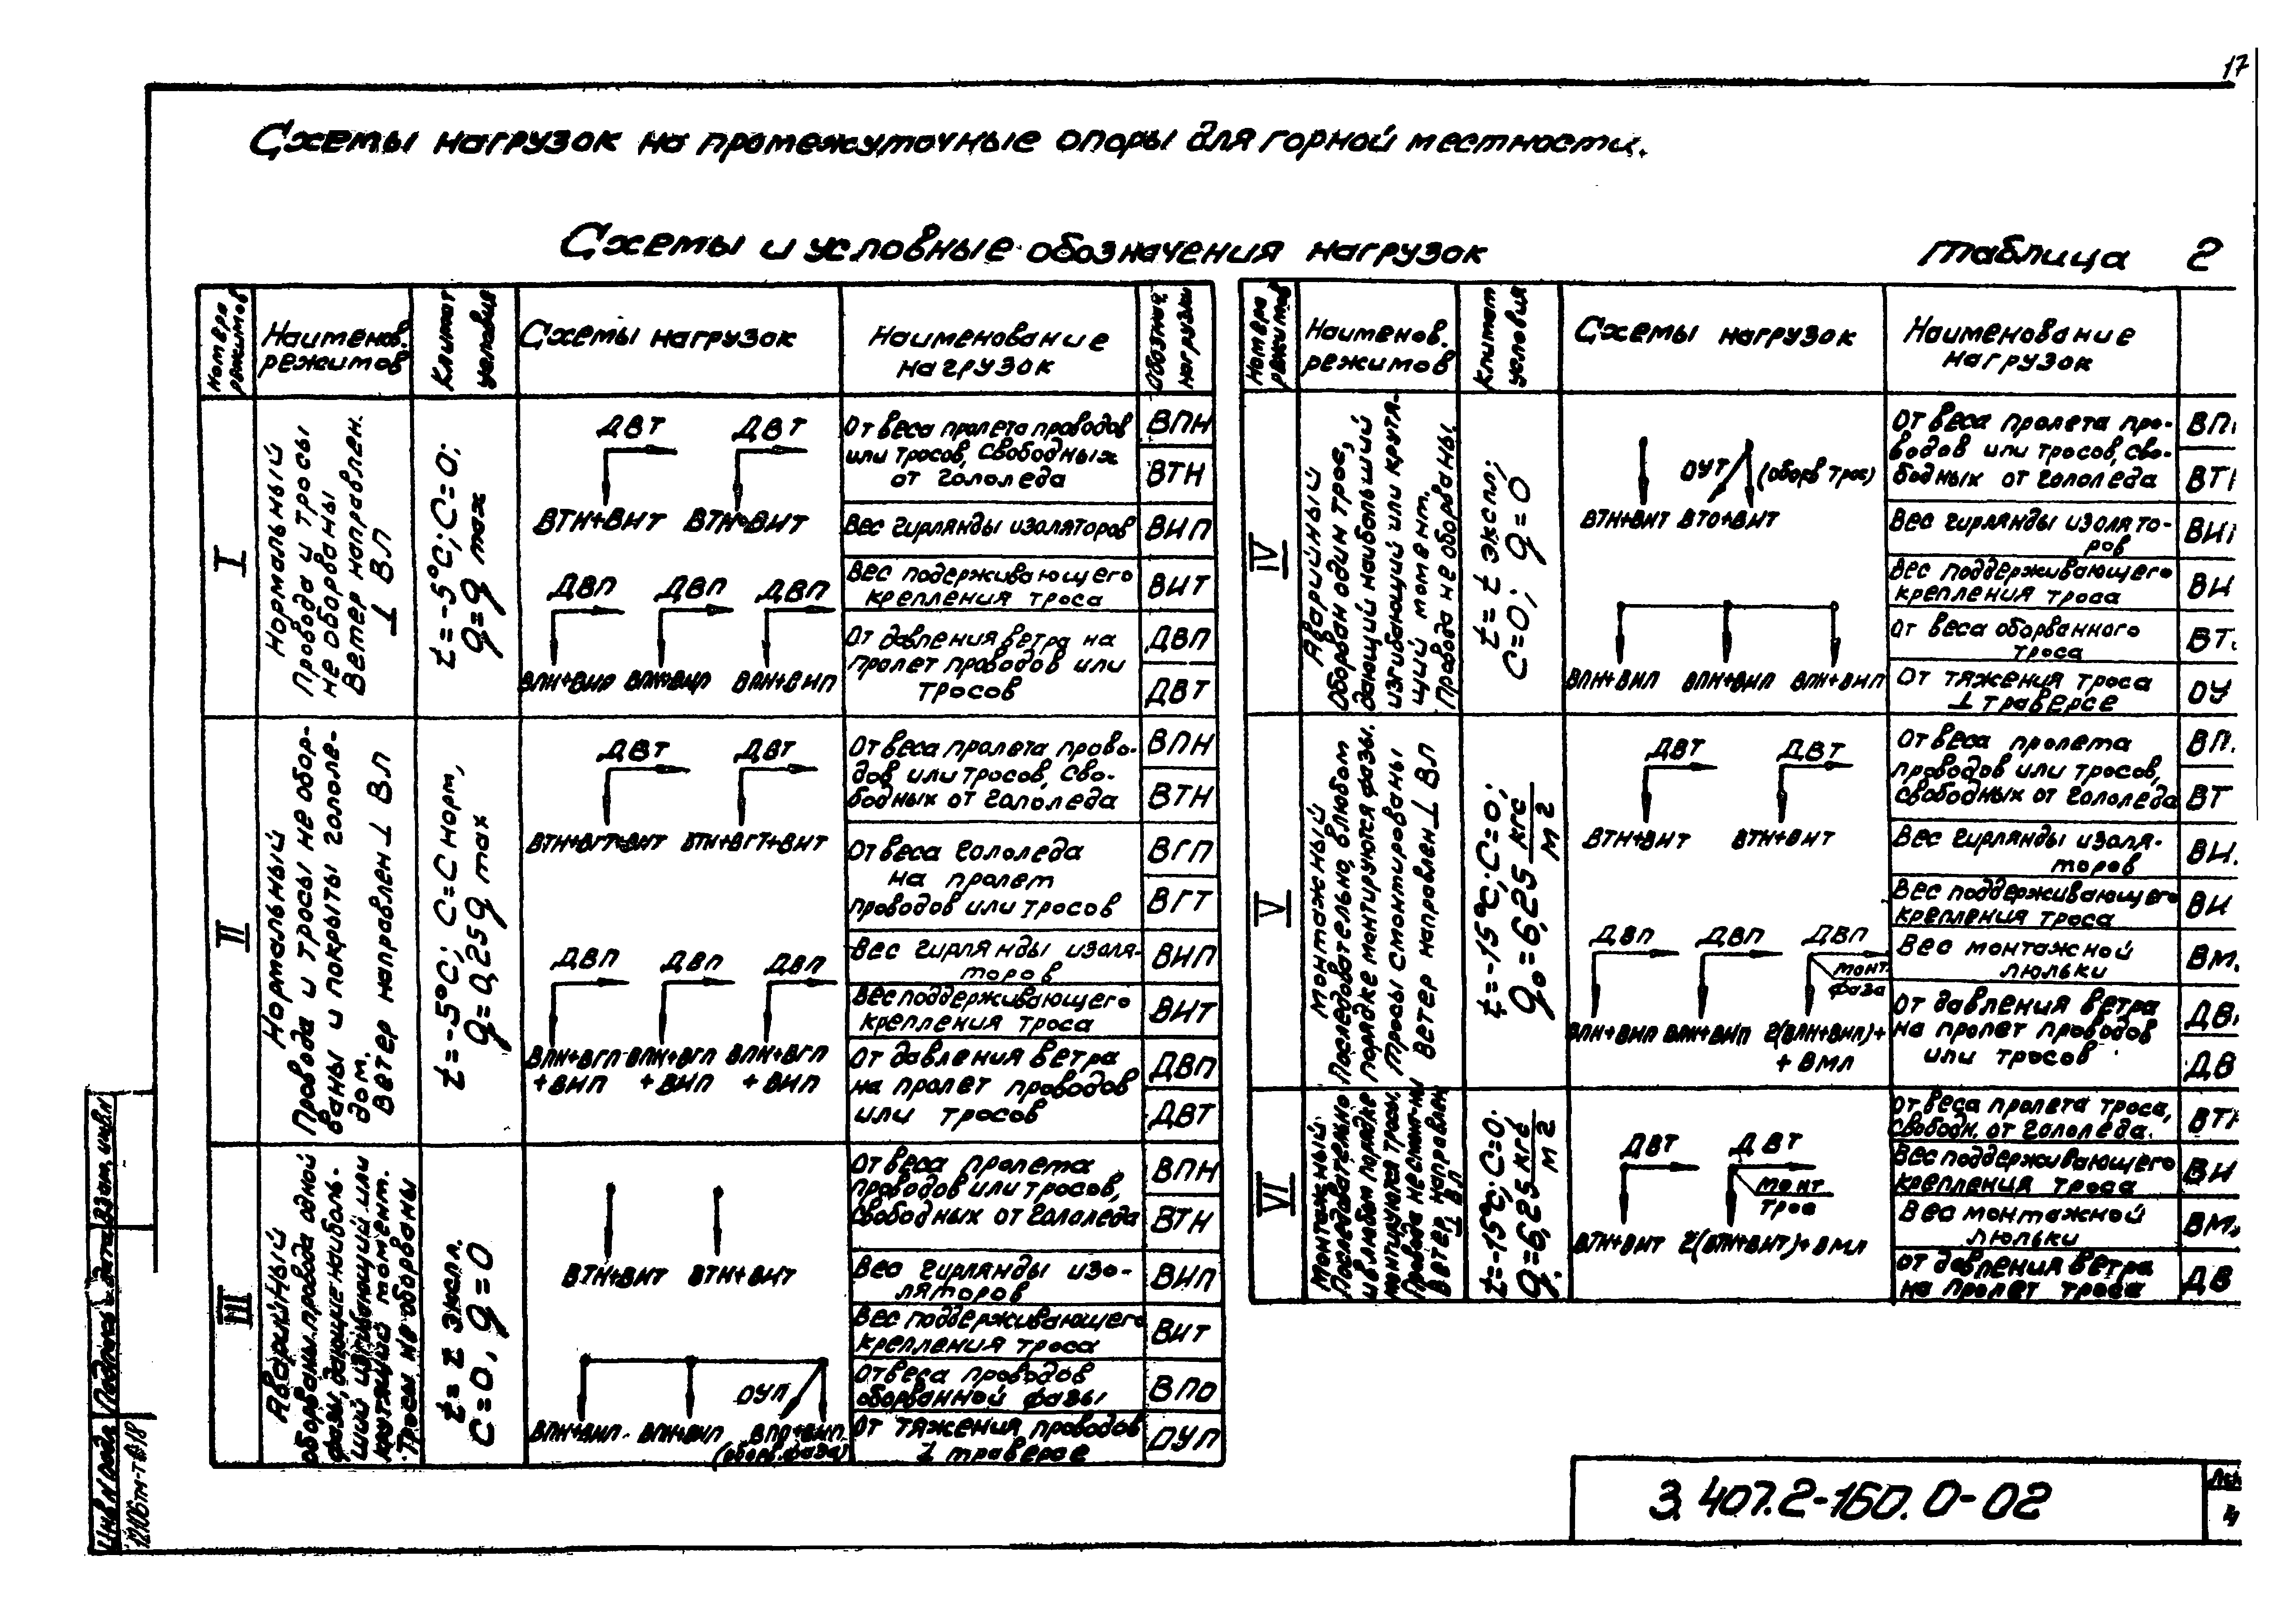 17
Схемы нагрузок на промежуточные опоры для горной местности.
Схемы и условные обозначения нагрузок
таблица 2
Номера режимов
Наименов. режимов
Климат условия
Схемы нагрузок
Наименование нагрузок
Обознач. нагрузки
I
Нормальный
Провода и тросы
не оборваны
Ветер направлен.
⊥ ВЛ
t=-5°C; C=0;
q=q max
ДВТ ДВТ
ВТН+ВИТ ВТН+ВИТ
ДВП ДВП ДВП
ВПН+ВИП ВПН+ВИП ВПН+ВИП
От веса пролета проводов
или тросов, свободных
от гололеда
ВПН
ВТН
Вес гирлянды изоляторов
ВИП
Вес поддерживающего
крепления троса
ВИТ
От давления ветра на
пролет проводов или
тросов
ДВП
ДВТ
II
Нормальный
Провода и тросы не обор-
ваны и покрыты гололе-
дом.
Ветер направлен ⊥ ВЛ
t=-5°C; C=C норм,
q=0,25q max
ДВТ ДВТ
ВТН+ВГТ+ВИТ ВТН+ВГТ+ВИТ
ДВП ДВП ДВП
ВПН+ВГП ВПН+ВГП ВПН+ВГП
+ВИП +ВИП +ВИП
От веса пролета прово-
дов или тросов, сво-
бодных от гололеда
ВПН
ВТН
От веса гололеда
на пролет
проводов или тросов
ВГП
ВГТ
Вес гирлянды изоля-
торов
ВИП
Вес поддерживающего
крепления троса
ВИТ
От давления ветра
на пролет проводов
или тросов
ДВП
ДВТ
III
Аварийный
оборваны провода одной
фазы, дающие наиболь-
ший изгибающий или
крутящий момент.
Тросы не оборваны
t=t экспл.
C=0, q=0
ВТН+ВИТ ВТН+ВИТ
ОУП
ВПН+ВИП ВПН+ВИП ВПО+ВИП
(оборв. фаза)
От веса пролета
проводов или тросов,
свободных от гололеда
ВПН
ВТН
Вес гирлянды изо-
ляторов
ВИП
Вес поддерживающего
крепления троса
ВИТ
От веса проводов
оборванной фазы
ВПО
От тяжения проводов
⊥ траверсе
ОУП
Номера режимов
Наименов. режимов
Климат условия
Схемы нагрузок
Наименование нагрузок
IV
Аварийный
Оборван один трос,
дающий наибольший
изгибающий или крутя-
щий момент.
Провода не оборваны.
t=t экспл;
C=0; q=0
ОУТ (оборв трос)
ВТН+ВИТ ВТО+ВИТ
ВПН+ВИП ВПН+ВИП ВПН+ВИП
От веса пролета про-
водов или тросов, сво-
бодных от гололеда
Вес гирлянды изолято-
ров
Вес поддерживающего
крепления троса
ВИ
От веса оборванного
троса
От тяжения троса
⊥ траверсе
ОУ
V
Монтажный
Последовательно, в любом
порядке монтируются фазы.
Тросы смонтированы
Ветер направлен ⊥ ВЛ
t=-15°C; C=0;
q₀=6,25 кгс/м²
ДВТ ДВТ
ВТН+ВИТ ВТН+ВИТ
ДВП ДВП ДВП
монт.
фаза
ВПН+ВИП ВПН+ВИП 2(ВПН+ВИП)+
+ВМЛ
От веса пролета
проводов или тросов,
свободных от гололеда
ВТ
Вес гирлянды изоля-
торов
Вес поддерживающего
крепления троса
ВИ
Вес монтажной
люльки
От давления ветра
на пролет проводов
или тросов
ДВ
VI
Монтажный
Последовательно
и в любом порядке
монтируются тросы,
Ветер направлен
⊥ ВЛ
t=-15°C; C=0.
q=6,25 кгс/м²
ДВТ ДВТ
монт
трос
ВТН+ВИТ 2(ВТН+ВИТ)+ВМЛ
От веса пролета троса,
свободн. от гололеда.
Вес поддерживающего
крепления троса
ВИ
Вес монтажной
люльки
От давления ветра
на пролет троса
ДВ
3.407.2-160.0-02
4
Инв.N подл. Подпись и дата Взам. инв.N